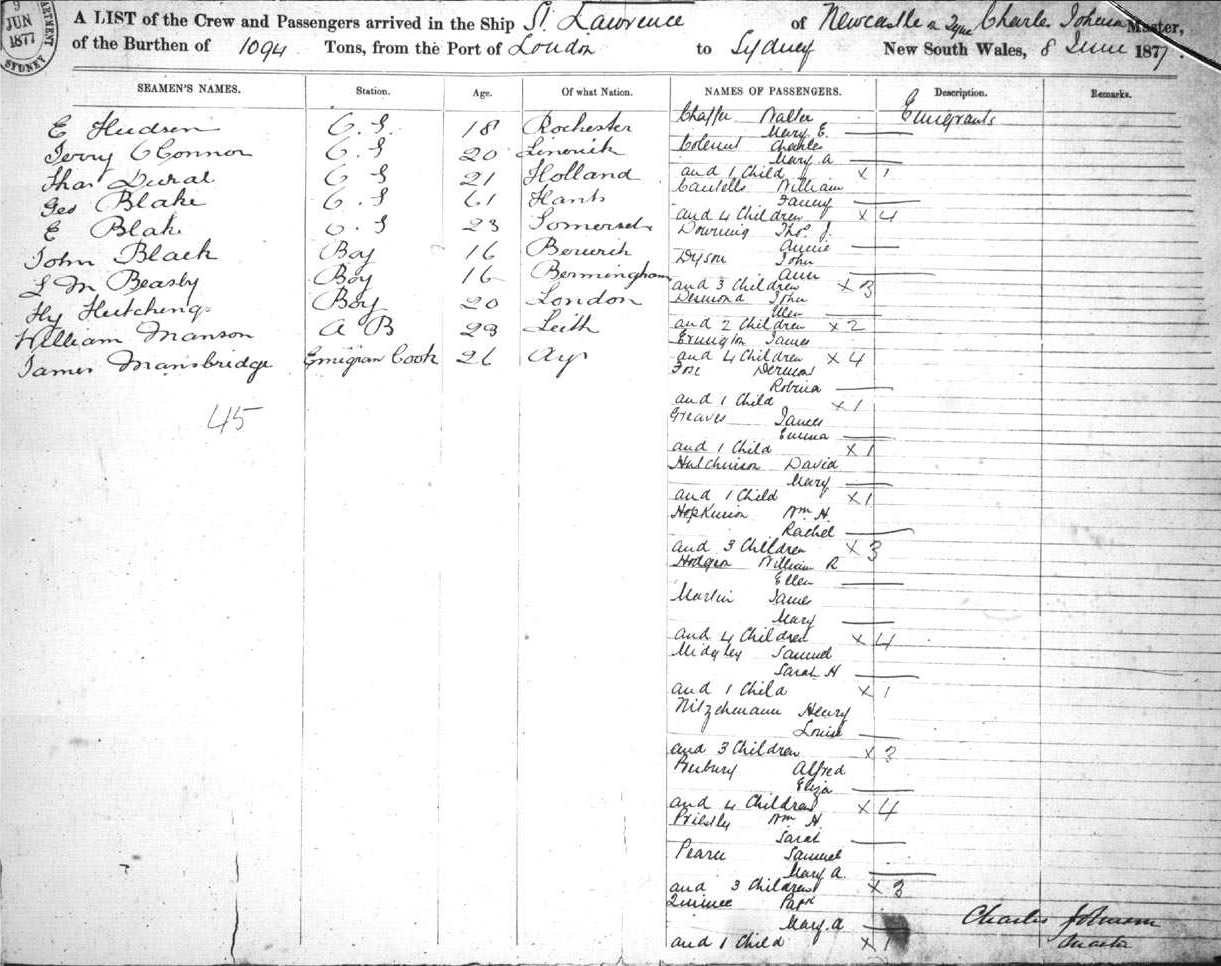 9
JUN
1877
SYDNEY
A LIST of the Crew and Passengers arrived in the Ship St. Lawrence of Newcastle Charles Johnson Master,
of the Burthen of 1094 Tons, from the Port of London to Sydney New South Wales, 8 June 1877.
SEAMEN'S NAMES. Station. Age. Of what Nation. NAMES OF PASSENGERS. Description. Remarks.
E Hudson O.S. 18 Rochester
Jerry OConnor O.S 20 Limerick
Thos Dural O S 21 Holland
Geo Blake O.S 61 Hants
E Blake O.S 23 Somerset
John Black Boy 16 Berwick
L M Beasby Boy 16 Bermingham
Hy Hutchings Boy 20 London
William Manson A B 23 Leith
James Mansbridge Emigran Cook 26 Ayr
45
Chaffer Walter Emigrants
Mary E.
Charles
Mary A
and 1 Child x 1
Cautells William
Fanny
and 4 Children x 4
Downing Thos J.
Annie
Dyson John
Ann
and 3 Children x 3
Desmond John
Ellen
and 2 Children x 2
Errington James
and 4 Children x 4
Dermod
Robina
and 1 Child x 1
Greaves James
Emma
and 1 Child x 1
Hutchinson David
Mary
and 1 Child x 1
Hopkinson Wm H.
Rachel
and 3 Children x 3
Hodgson William R
Ellen
Martin James
Mary
and 4 Children x 4
Midgley Samuel
Sarah H
and 1 Child x 1
Nitzchmann Henry
Louise
and 3 Children x 3
Alfred
Eliza
and 4 Children x 4
Priestly Wm H
Sarah
Pearce Samuel
Mary A.
and 3 Children x 3
Mary A
and 1 Child x 1
Charles Johnson
Master